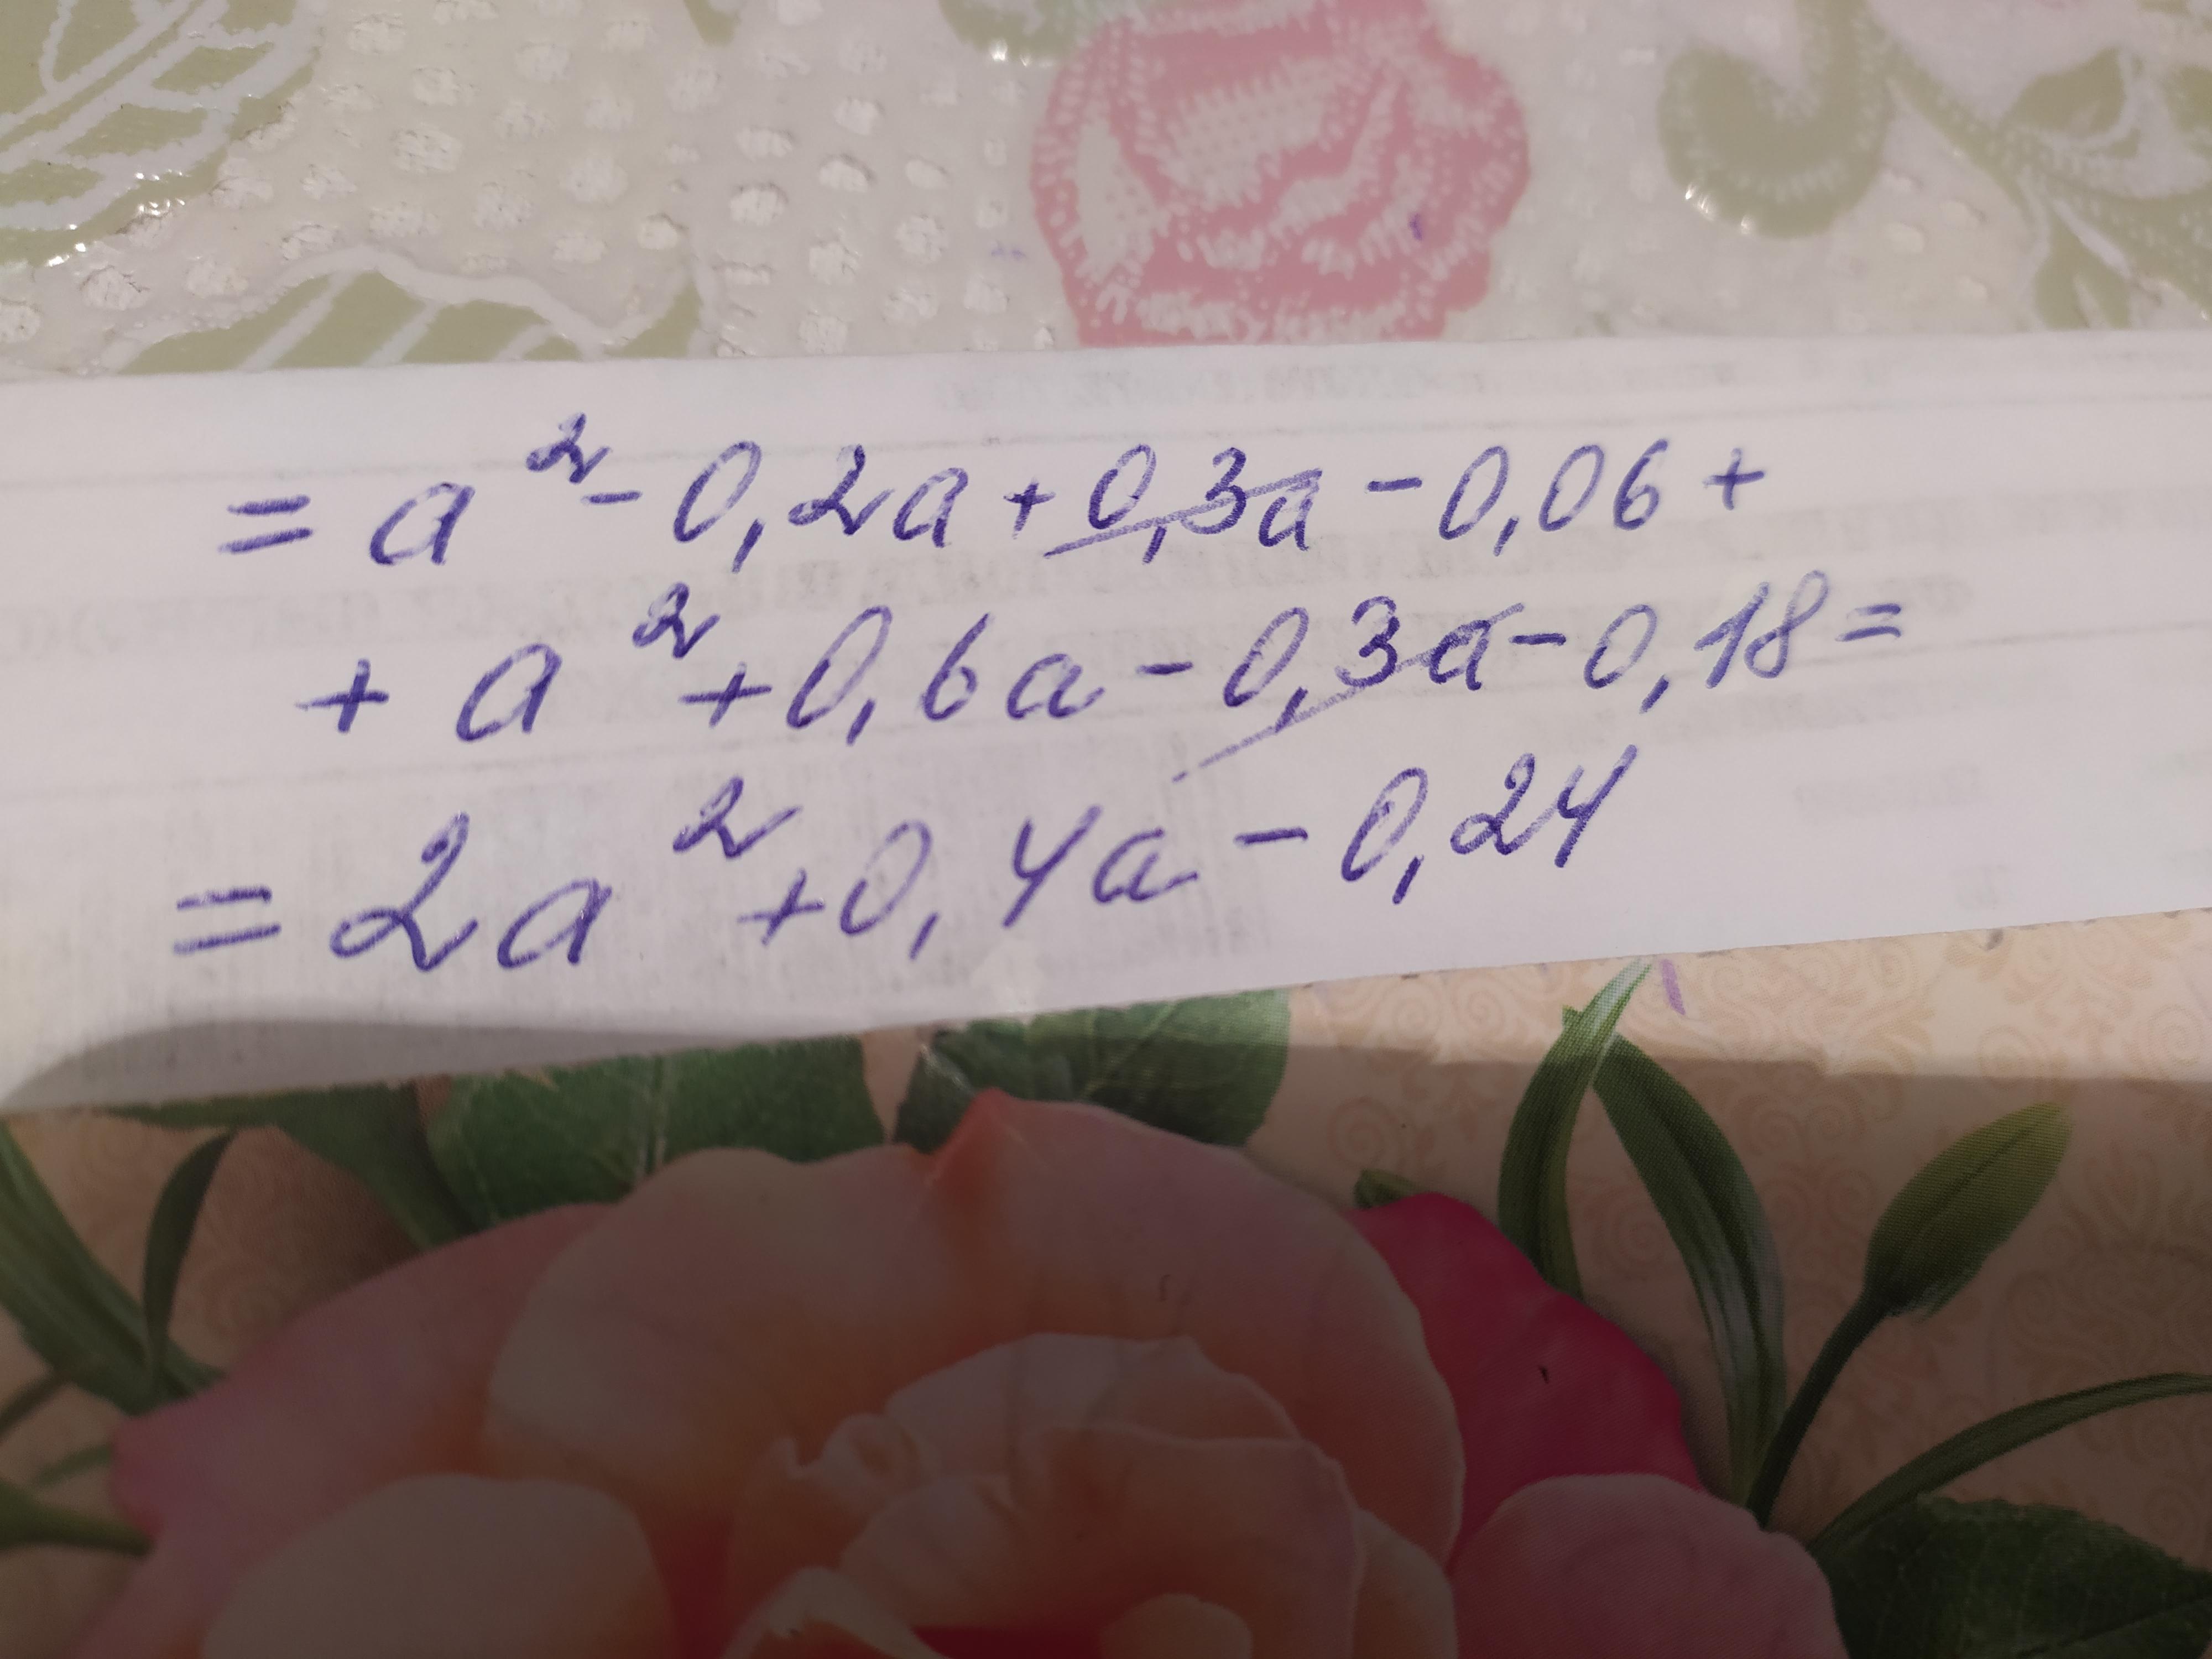 = a² - 0,2a + 0,3a - 0,06 +
+ a² + 0,6a - 0,3a - 0,18 =
= 2a² + 0,4a - 0,24